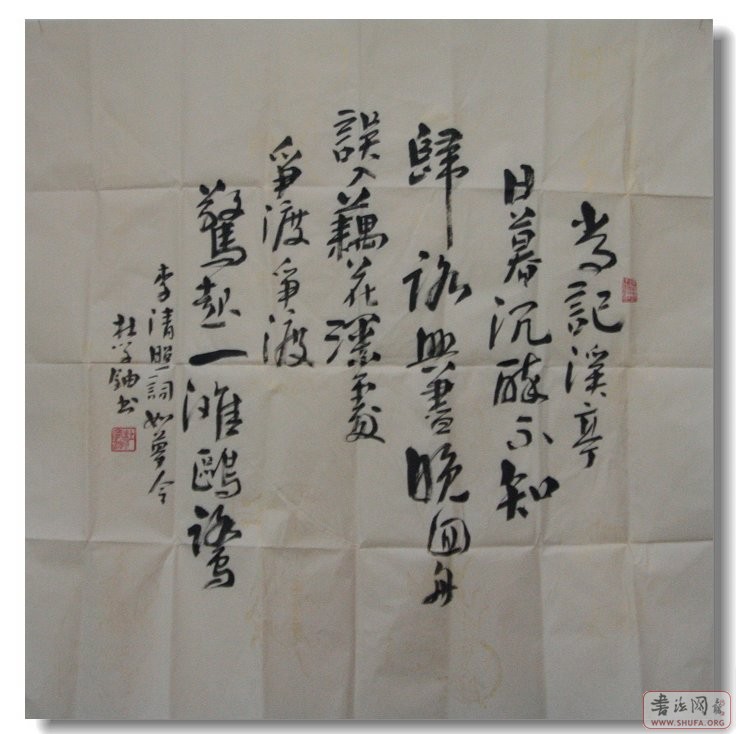 常記溪亭
日暮沉醉不知
歸路興盡晚回舟
誤入藕花深處
爭渡爭渡
驚起一灘鷗鷺
李清照詞如夢令
杜学鈾书
書法网
WWW.SHUFA.ORG